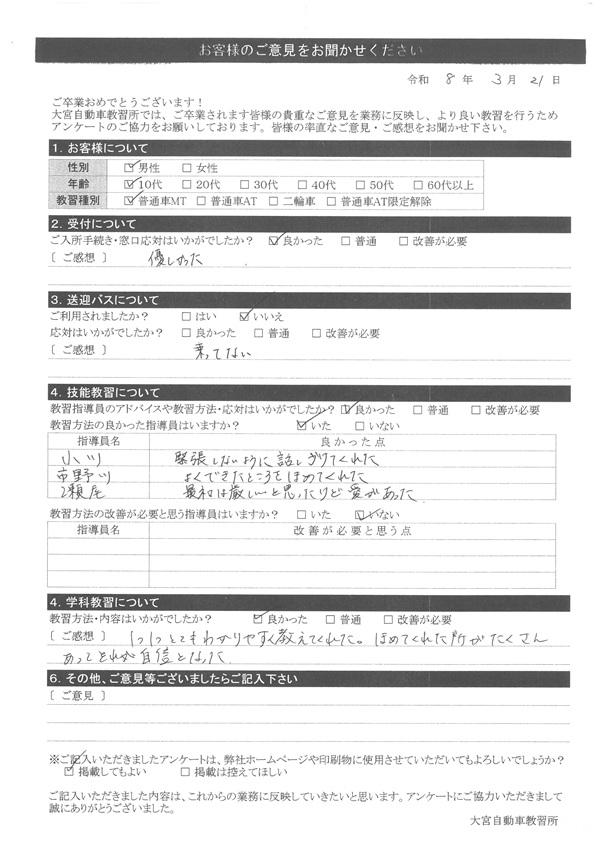 お客様のご意見をお聞かせください
令和 8 年 3 月 21 日
ご卒業おめでとうございます！
大宮自動車教習所では、ご卒業されます皆様の貴重なご意見を業務に反映し、より良い教習を行うため
アンケートのご協力をお願いしております。皆様の率直なご意見・ご感想をお聞かせ下さい。
1. お客様について
性別 ☑男性 □女性
年齢 ☑10代 □20代 □30代 □40代 □50代 □60代以上
教習種別 ☑普通車MT □普通車AT □二輪車 □普通車AT限定解除
2. 受付について
ご入所手続き・窓口応対はいかがでしたか？ ☑良かった □普通 □改善が必要
［ ご感想 ］ 優しかった
3. 送迎バスについて
ご利用されましたか？ □はい ☑いいえ
応対はいかがでしたか？ □良かった □普通 □改善が必要
［ ご感想 ］ 乗ってない
4. 技能教習について
教習指導員のアドバイスや教習方法・応対はいかがでしたか？ ☑良かった □普通 □改善が必要
教習方法の良かった指導員はいますか？ ☑いた □いない
指導員名 良かった点
小川 緊張しないように話しかけてくれた
市野川 よくできたところをほめてくれた
瀬尾 最初は厳しいと思ったけど愛があった
教習方法の改善が必要と思う指導員はいますか？ □いた ☑いない
指導員名 改善が必要と思う点
4. 学科教習について
教習方法・内容はいかがでしたか？ ☑良かった □普通 □改善が必要
［ ご感想 ］ 1つ1つとてもわかりやすく教えてくれた。ほめてくれた所がたくさん
あってそれが自信となった
6. その他、ご意見等ございましたらご記入下さい
［ ご意見 ］
※ご記入いただきましたアンケートは、弊社ホームページや印刷物に使用させていただいてもよろしいでしょうか？
☑掲載してもよい □掲載は控えてほしい
ご記入いただきました内容は、これからの業務に反映していきたいと思います。アンケートにご協力いただきまして
誠にありがとうございました。
大宮自動車教習所